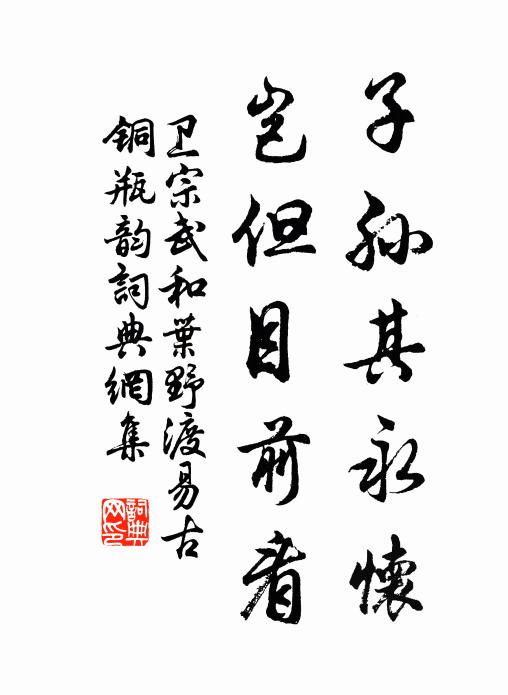 子孙其永懷
岂但目前看
卫宗武和葉野渡易古
铜瓶韵詞典網集
詞典
网印